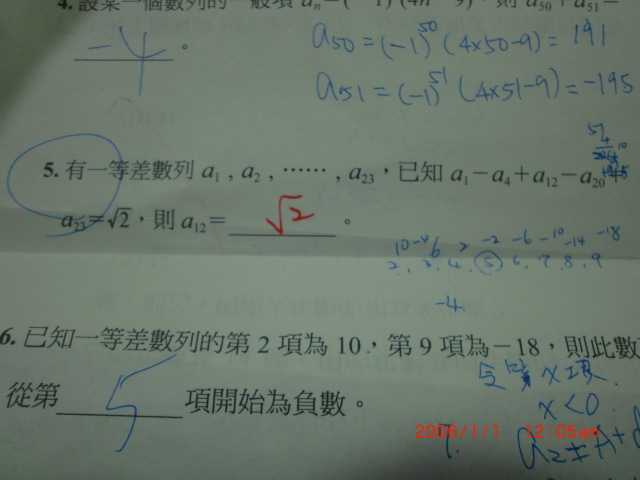 4. 設某一個數列的一般項 aₙ=(-1)ⁿ(4n-9),則 a₅₀+a₅₁=
-4。
a₅₀=(-1)⁵⁰(4×50-9)=191
a₅₁=(-1)⁵¹(4×51-9)=-195
5. 有一等差數列 a₁ , a₂ , …… , a₂₃,已知 a₁-a₄+a₁₂-a₂₀+
a₂₃=√2,則 a₁₂= √2 。
10 -4 6 2 -2 -6 -10 -14 -18
2. 3. 4. 5 6. 7. 8. 9
-4.
6. 已知一等差數列的第 2 項為 10,第 9 項為-18,則此數
從第 5 項開始為負數。
令第 x 項
x<0
2006/1/1 12:05am
7.